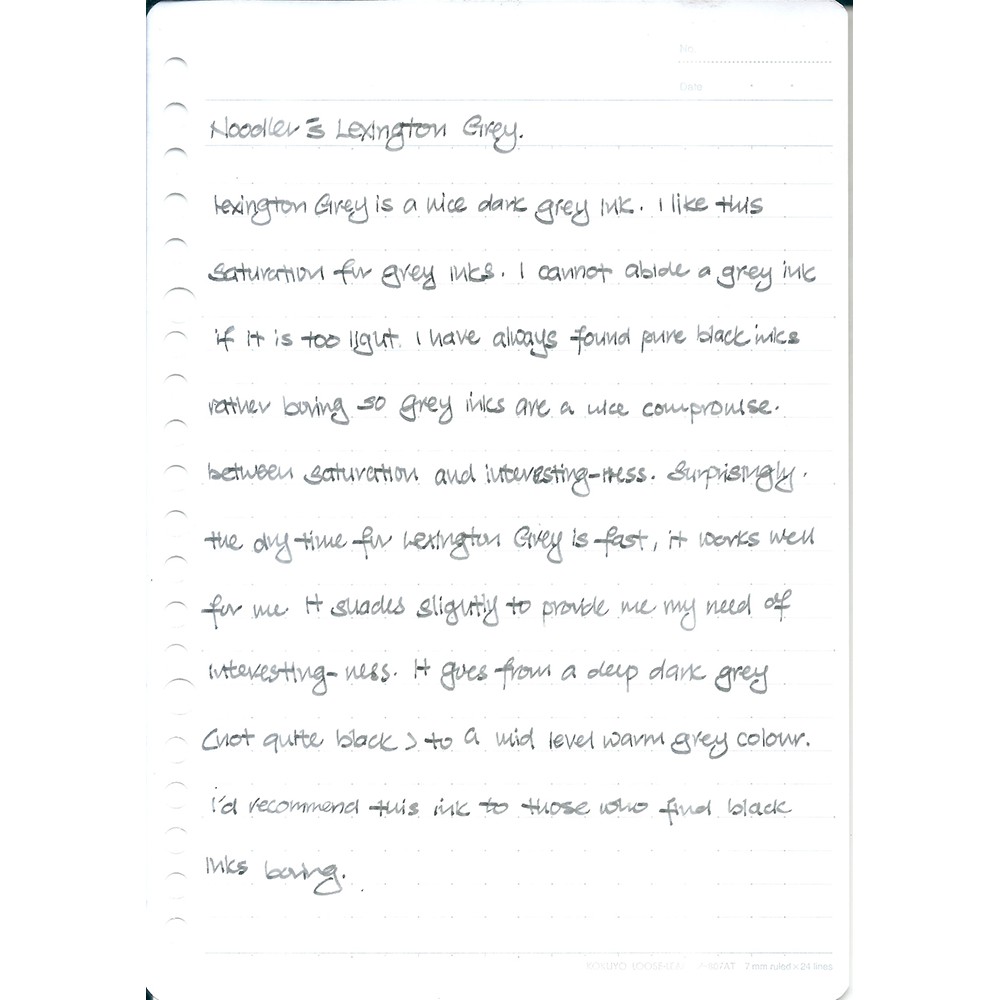 No.
Date
Noodler's Lexington Grey.
Lexington Grey is a nice dark grey ink. I like this
saturation for grey inks. I cannot abide a grey ink
if it is too light. I have always found pure black inks
rather boring so grey inks are a nice compromise.
between saturation and interesting-ness. Surprisingly.
the dry time for Lexington Grey is fast, it works well
for me. It shades slightly to provide me my need of
interesting-ness. It goes from a deep dark grey
(not quite black) to a mid level warm grey colour.
I'd recommend this ink to those who find black
inks boring.
7 mm ruled × 24 lines